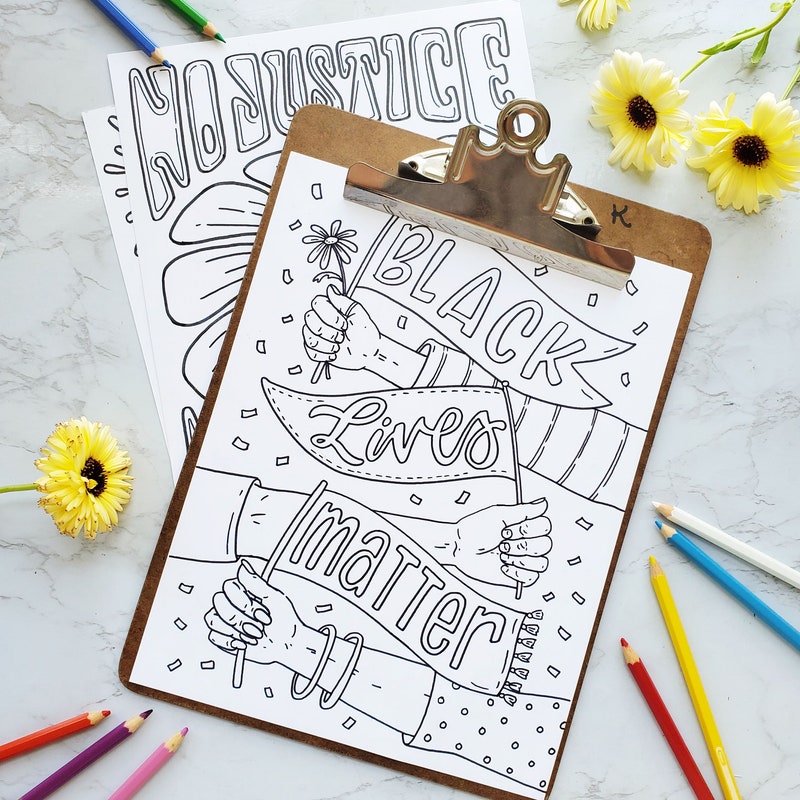 NO JUSTICE
K
BLACK
Lives
MATTER